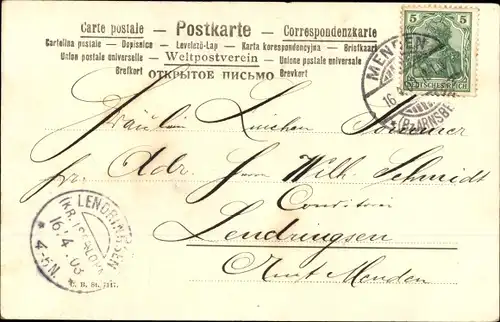 Carte postale — Postkarte — Correspondenzkarte
Cartolina postale — Dopisnice — Levelező-Lap — Karta korespondencyjna — Briefkaart
Union postale universelle — Weltpostverein — Unione postale universale
Brefkort — ОТКРЫТОЕ ПИСЬМО — Brevkort
5 5
DEUTSCHES REICH
MENDEN
16
(B. ARNSBE
Fräulein Linchen
pr. Adr. Herrn Wilh. Schmidt
Conditor
Lendringsen
Amt Menden
LENDRINGSEN
(KR. ISERLOHN
16.4.03
* 4-5N. *
7117.